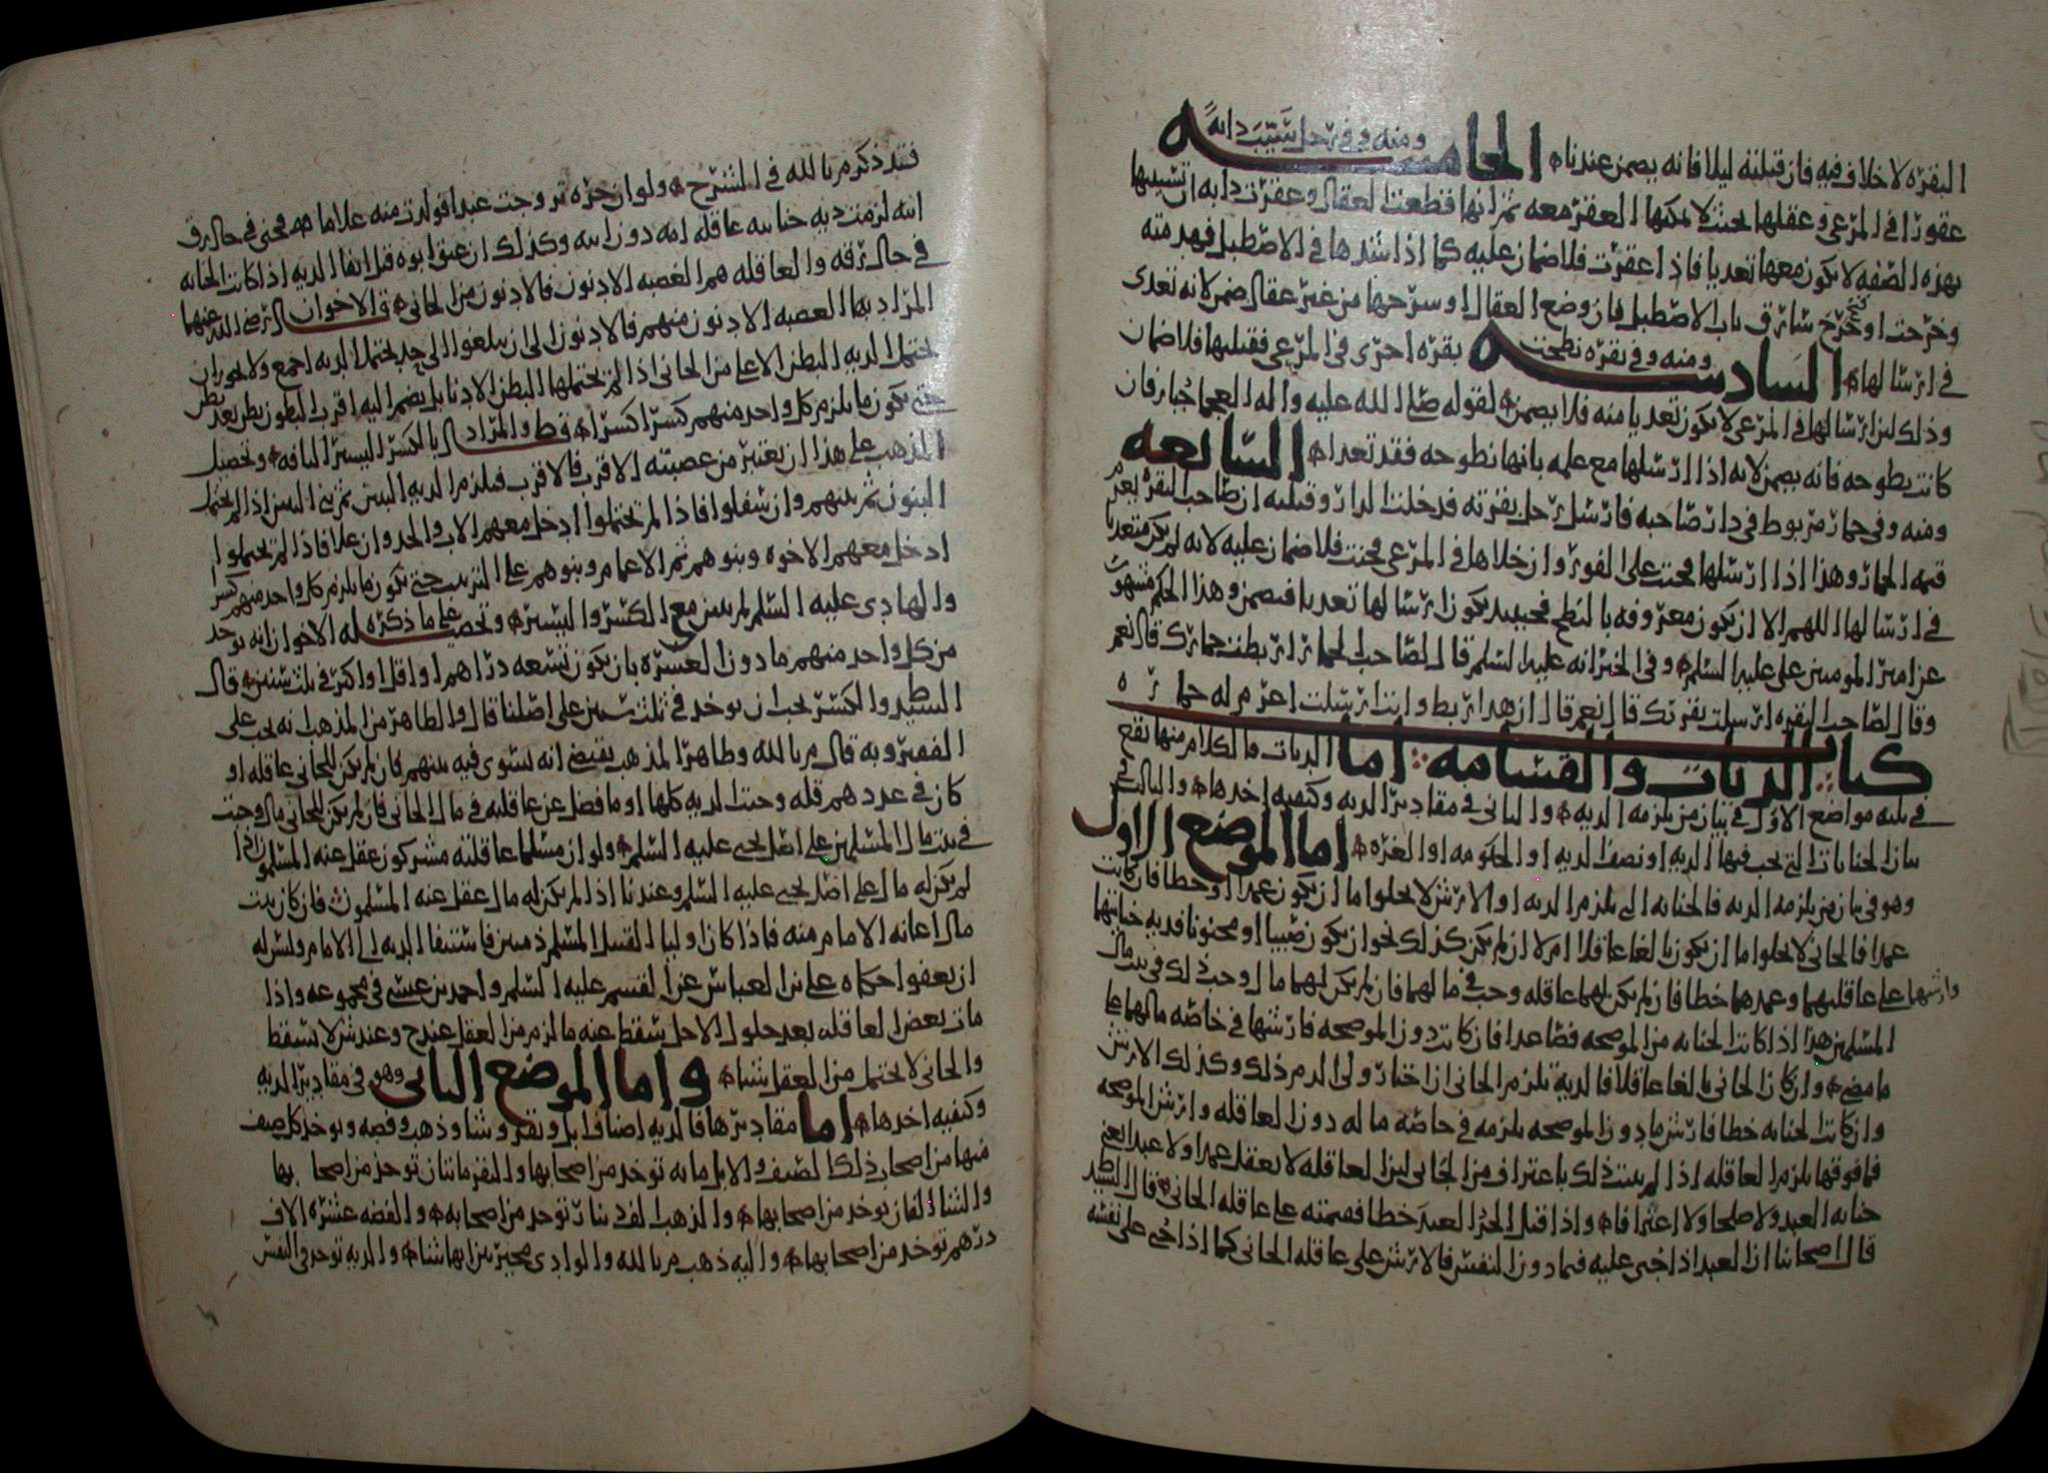 البقره لا خلاف فيه فان قتلته ليلا فانه يضمن عندنا الخامسه ومنه في رجل سيب دابة
عقورا في المرعى وعقلها بحيث لا يمكنها العقر معه ثم انها قطعت العقال وعقرت دابه ان تسييبها
بهذه الصفه لا يكون معها تعديا فاذا عقرت فلا ضمان عليه كما اذا شدها في الاصطبل فهدمته
وخرجت او فتح سارق باب الاصطبل فان وضع العقال او سرحها من غير عقال ضمن لانه تعدى
في ارسالها السادسه ومنه وفي بقره نطحت بقره اخرى في المرعى فقتلتها فلا ضمان
وذلك لان ارسالها في المرعى لا يكون تعديا منه فلا يضمن لقوله صلى الله عليه واله العجما جبار فان
كانت نطوحه فانه يضمن لانه اذا ارسلها مع علمه بانها نطوحه فقد تعدا السابعه
ومنه وفي حمار مربوط في دار صاحبه فارسل رجل بقرته فدخلت الدار وقتلته ان صاحب البقره يغرم
قيمه الحمار وهذا اذا ارسلها فجنت على الفور وان خلاها في المرعى فجنت فلا ضمان عليه لانه لم يكن متعديا
في ارسالها اللهم الا ان يكون معروفه بالنطح فحينيد يكون ارسالها تعديا فيضمن وهذا الحكم مشهور
عن امير المومنين علي عليه السلم وفي الخبر انه عليه السلم قال لصاحب الحمار اربطت حمارك قال نعم
وقال لصاحب البقره ارسلت بقرتك قال نعم قال ان هدا ربط وانت ارسلت اغرم له حماره
كتاب الديات والقسامه اما الديات فالكلام منها يقع
في ثلثه مواضع الاول في بيان من يلزمه الديه والثاني في مقادير الديه وكيفيه اخذها والثالث في
بيان الجنايات التي تجب فيها الديه او نصف الديه او الحكومه او الغره اما الموضع الاول
وهو في بيان من يلزمه الديه فالجنايه التي يلزم الديه او الارش لا يخلوا اما ان يكون عمدا او خطا فان كانت
عمدا فالجاني لا يخلوا ما ان يكون بالغا عاقلا ام لا ان لم يكن كذلك نحو ان يكون صبيا او مجنونا فديه جنايتهما
وارشها على عاقلتهما وعمدهما خطا فان لم يكن لهما عاقله وجب في مالهما فان لم يكن لهما مال وجب ذلك في بيت مال
المسلمين هذا اذا كانت الجنايه من الموضحه فصاعدا فان كانت دون الموضحه فارشها في خاصه مالهما على
ما مضى وان كان الجاني بالغا عاقلا فالدية يلزم الجاني ان اختار ولي الدم ذلك وكذلك الارش
وان كانت الجنايه خطا فارش ما دون الموضحه يلزمه في خاصه ماله دون العاقله وارش الموضحه
فما فوقها يلزم العاقله اذا لم يثبت ذلك باعتراف من الجاني لان العاقله لا يعقل عمدا ولا عبدا يعني
جنايه العبد ولا صلحا ولا اعترافا واذا قتل الحر العبد خطا فقيمته على عاقله الجاني قال السيد
قال اصحابنا ان العبد اذا جني عليه فيما دون النفس فالارش على عاقله الجاني كما اذا جني على نفسه
فقد ذكر م بالله في الشرح ولو ان حره تزوجت عبدا فولدت منه غلاما فجنى في حال رق
ابيه لزمت ديه جنايته عاقله امه دون ابيه وكذلك ان عتق ابوه قبل ايفا الديه اذا كانت الجنايه
في حال رقه والعاقله هم العصبه الادنون فالادنون من الجاني ق الاخوان رضي الله عنهما
المراد بها العصبه الادنون منهم فالادنون الى ان يبلغوا الى حد يحتمل الديه اجمع ولا يجوز ان
يحتمل الديه البطن الاعلى من الجاني اذا لم يحتملها البطن الادنا بل يضم اليه اقرب البطون بطن بعد بطن
حتى يكون ما يلزم كل واحد منهم كسرا كسرا ق ط والمراد بالكسر اليسير التافه وتحصيل
المذهب على هذا ان يعتبر من عصبته الاقرب فالاقرب فيلزم الديه البنين ثم بني البنين اذا لم يحتمل
البنون ثم بنيهم وان سفلوا فاذا لم يحتملوا ادخل معهم الاب والجد وان علا فاذا لم يحتملوا
ادخل معهم الاخوه وبنوهم ثم الاعمام وبنوهم على الترتيب حتى يكون ما يلزم كل واحد منهم كسر
والهادي عليه السلم لم يبين مع الكسر واليسير وتحصيل على ما ذكره له الاخوان انه يوخد
من كل واحد منهم ما دون العشره بان يكون تسعه دراهم او اقل او اكثر في ثلث سنين قال
السيد ط والكسر يجب ان يوخد في ثلث سنين على اصلنا قال والظاهر من المذهب انه يجب على
الفقير وبه قال م بالله وظاهر المذهب يقتضي انه يستوى فيه بينهم فان لم يكن للجاني عاقله او
كان في عددهم قله وجبت الديه كلها او ما فضل عن عاقلته في مال الجاني فان لم يكن للجاني مال وجبت
في بيت مال المسلمين على اصل يحيى عليه السلم ولو ان مسلما عاقلته مشركون عقل عنه المسلمون اذا
لم يكن له مال على اصل يحيى عليه السلم وعندنا اذا لم يكن له مال عقل عنه المسلمون فان كان بيت
مال اعانه الامام منه فاذا كان وليا القتيل المسلم ذميين فاستيفا الديه الى الامام وليس له
ان يعفوا حكاه علي بن العباس عن القسم عليه السلم واحمد بن عيسى في مجموعه واذا
مات بعض العاقله بعد حلول الاجل سقط عنه ما لزم من العقل عند ح وعند ش لا يسقط
والجاني لا يحتمل من العقل شيئا واما الموضع الثاني وهو في مقادير الديه
وكيفيه اخذها اما مقاديرها فالديه اصناف ابل وبقر وشا وذهب وفضه ويوخد كل صنف
منها من اصحاب ذلك الصنف والابل مايه توخد من اصحابها والبقر مايتان توخد من اصحابها
والشا الفان يوخد من اصحابها والذهب الف دينار توخد من اصحابه والفضه عشره الاف
درهم توخد من اصحابها واليه ذهب م بالله والوادي مخير بين ايها شا والديه توخد في النفس